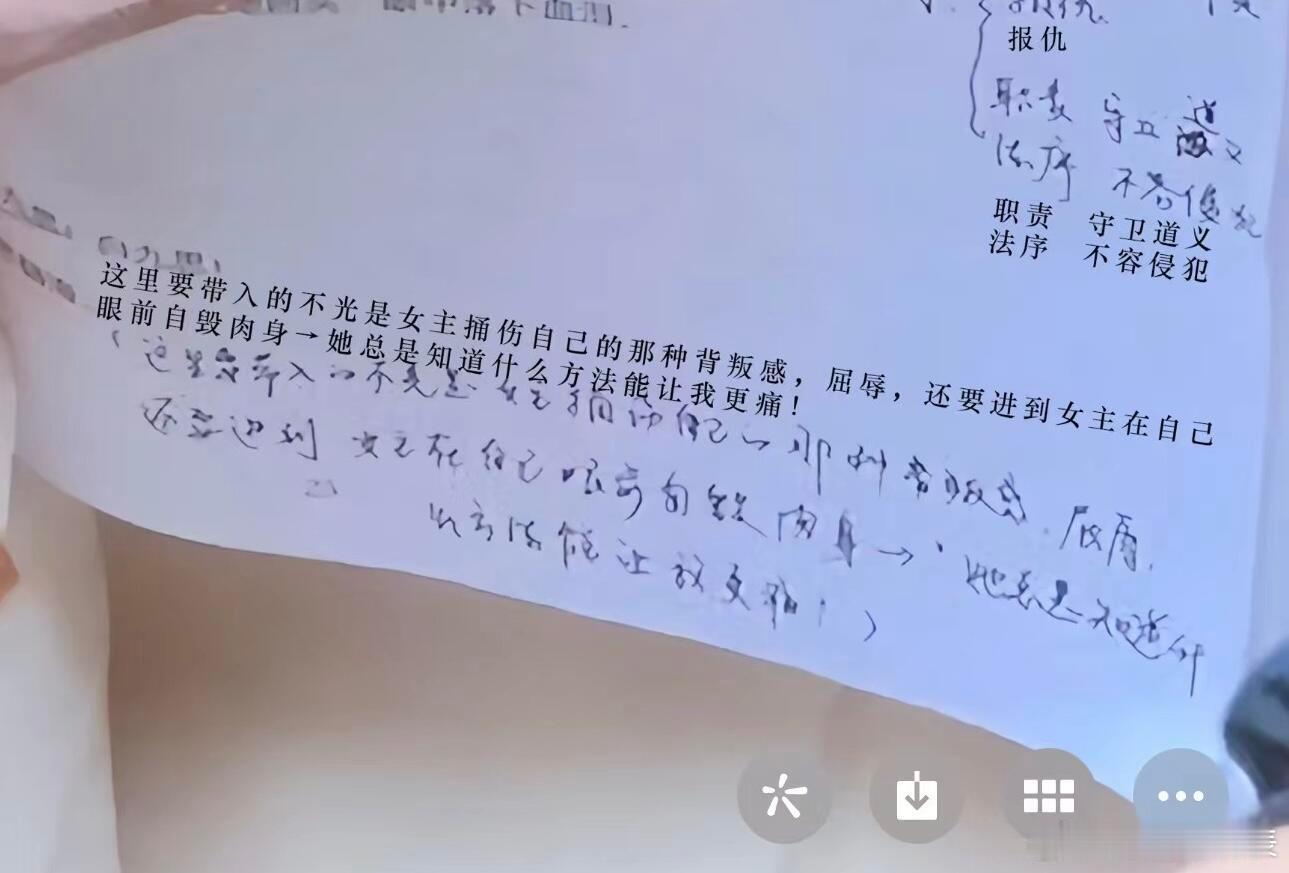 报仇
报仇
职责 守卫道义
法序 不容侵犯
职责 守卫道义
法序 不容侵犯
这里要带入的不光是女主捅伤自己的那种背叛感，屈辱，还要进到女主在自己
眼前自毁肉身→她总是知道什么方法能让我更痛！
（这里要带入的不光是女主捅伤自己的那种背叛感.屈辱.
还要进到女主在自己眼前自毁肉身→她总是知道什
么方法能让我更痛！）